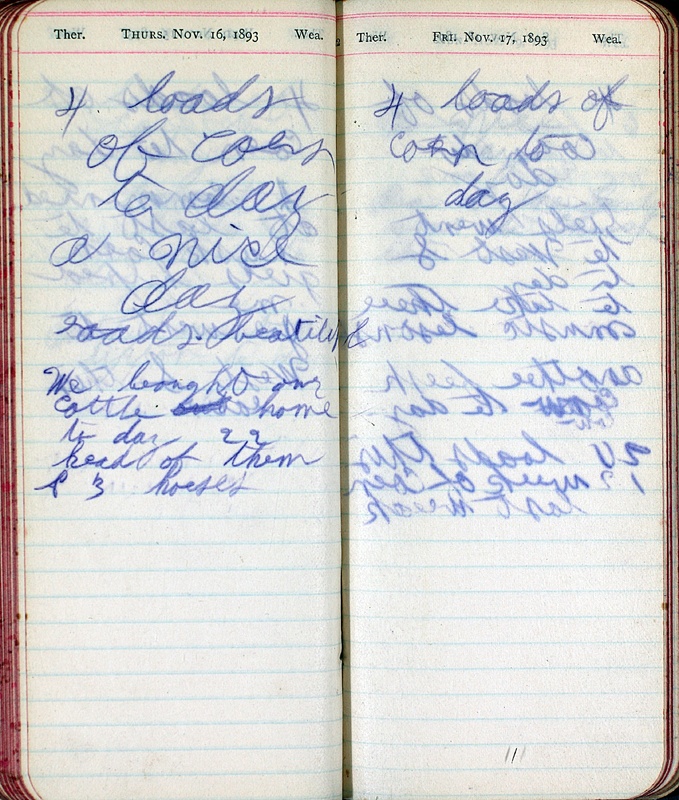 Ther. THURS. NOV. 16, 1893 Wea.
4 loads
of Corn
to day
a nice
day
roads. beatiful
We brought our
Cattle home
to day 22
head of them
& 3 horses
Ther. FRI. NOV. 17, 1893 Wea.
4 loads of
Corn to
day